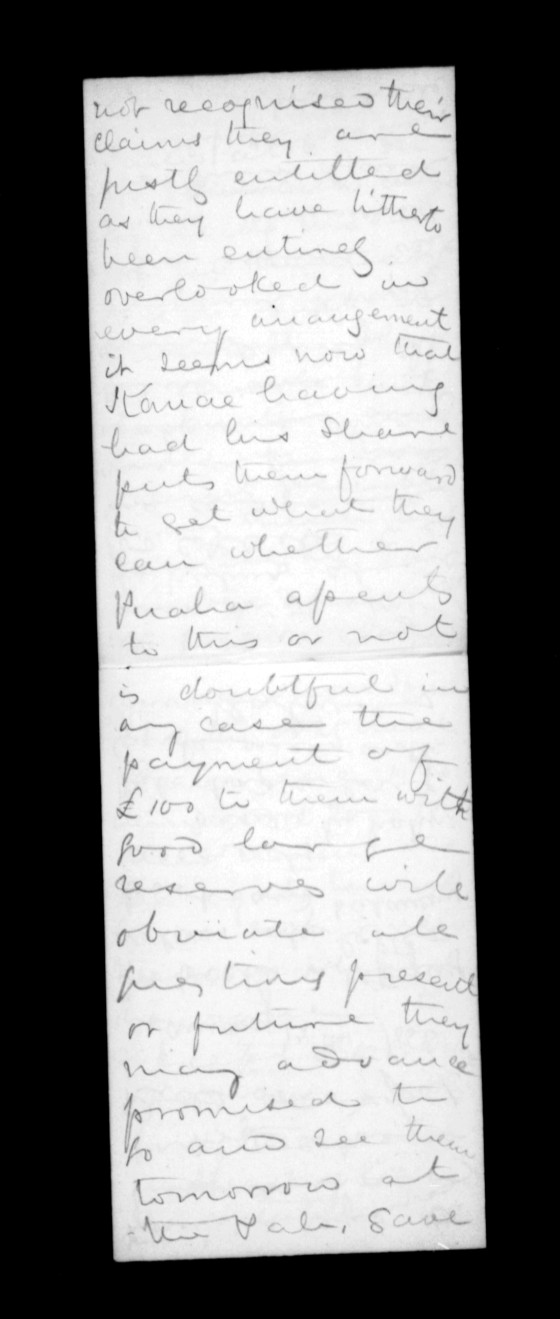 not recognised their
claims they are
justly entitled
as they have hitherto
been entirely
overlooked in
every arrangement
it seems now that
Karaue having
had his share
puts them forward
to get what they
can whether
Puaha assents
to this or not
is doubtful in
any case the
payment of
£100 to them with
good large
reserves will
obviate all
questions present
or future they
may advance
promised to
go and see them
tomorrow at
the Pah, Save